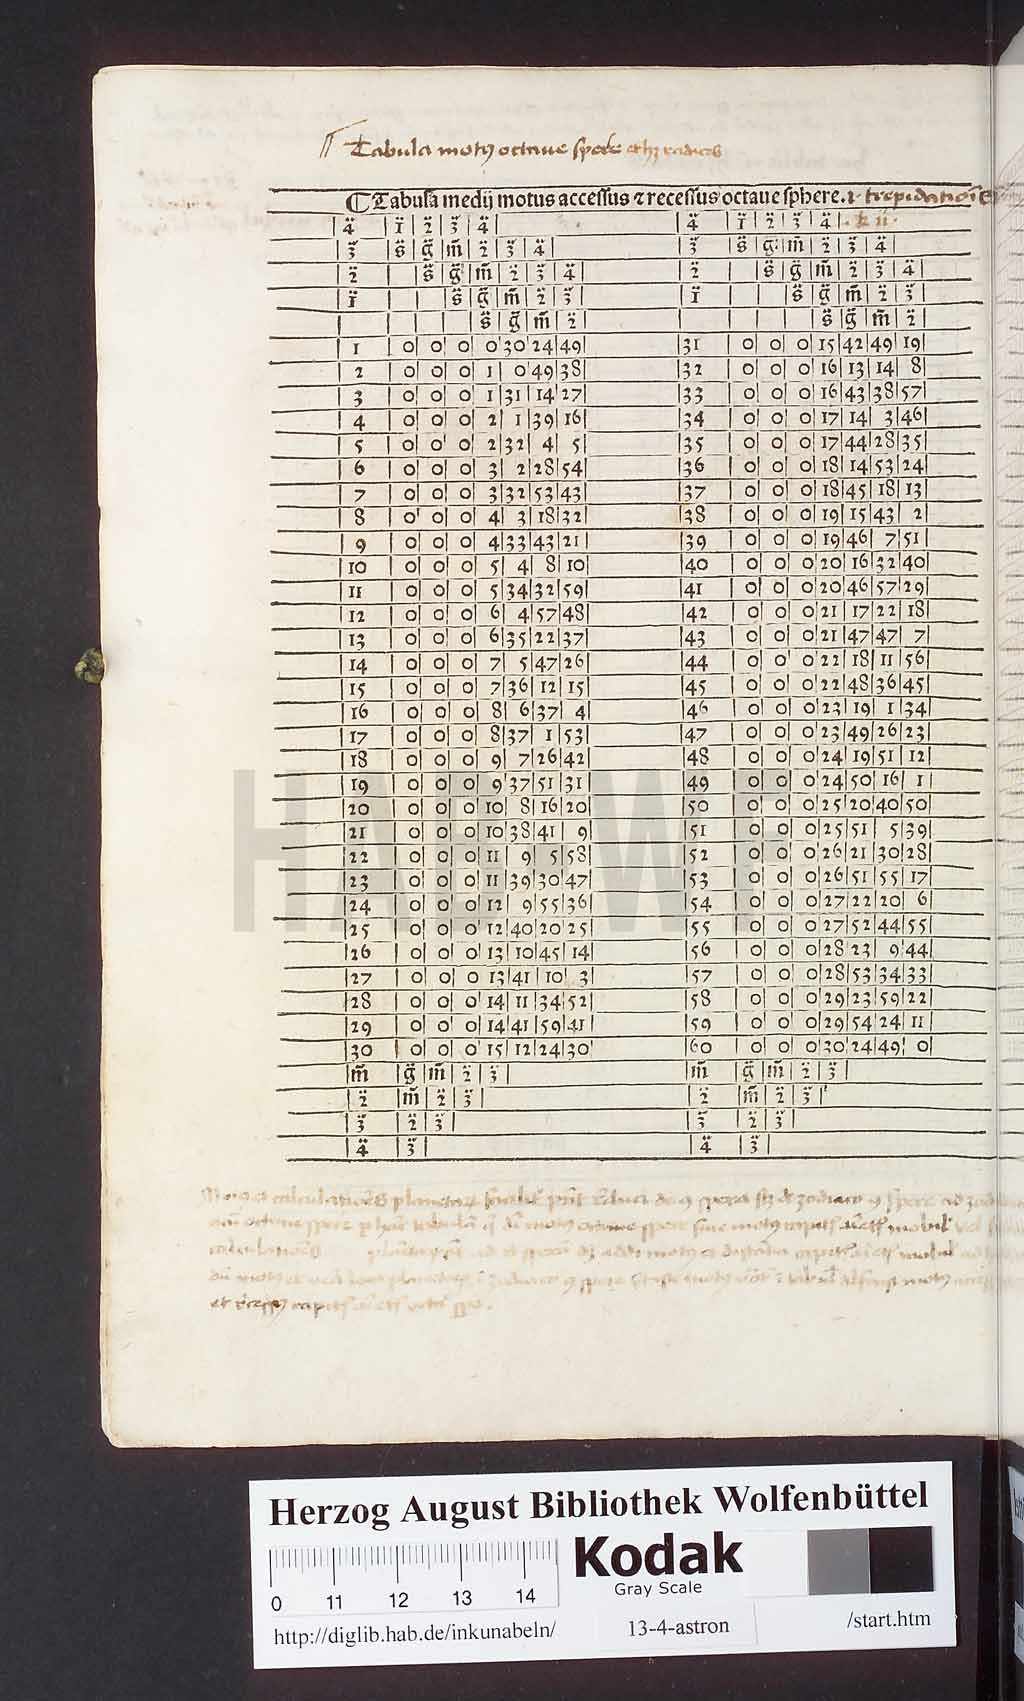 Tabula motus octaue spere
Tabula medij motus accessus ⁊ recessus octaue sphere.
4̈ | ï | 2̈ | 3̈ | 4̈ | 4̈ | ï | 2̈ | 3̈ | 4̈
3̈ | s̈ | g̈ | m̄ | 2̈ | 3̈ | 4̈ | 3̈ | s̈ | g̈ | m̄ | 2̈ | 3̈ | 4̈
2̈ | s̈ | g̈ | m̄ | 2̈ | 3̈ | 4̈ | 2̈ | s̈ | g̈ | m̄ | 2̈ | 3̈ | 4̈
ï | s̈ | g̈ | m̄ | 2̈ | 3̈ | ï | s̈ | g̈ | m̄ | 2̈ | 3̈
s̈ | g̈ | m̄ | 2̈ | s̈ | g̈ | m̄ | 2̈
1 0 0 0 0 30 24 49 31 0 0 0 15 42 49 19
2 0 0 0 1 0 49 38 32 0 0 0 16 13 14 8
3 0 0 0 1 31 14 27 33 0 0 0 16 43 38 57
4 0 0 0 2 1 39 16 34 0 0 0 17 14 3 46
5 0 0 0 2 32 4 5 35 0 0 0 17 44 28 35
6 0 0 0 3 2 28 54 36 0 0 0 18 14 53 24
7 0 0 0 3 32 53 43 37 0 0 0 18 45 18 13
8 0 0 0 4 3 18 32 38 0 0 0 19 15 43 2
9 0 0 0 4 33 43 21 39 0 0 0 19 46 7 51
10 0 0 0 5 4 8 10 40 0 0 0 20 16 32 40
11 0 0 0 5 34 32 59 41 0 0 0 20 46 57 29
12 0 0 0 6 4 57 48 42 0 0 0 21 17 22 18
13 0 0 0 6 35 22 37 43 0 0 0 21 47 47 7
14 0 0 0 7 5 47 26 44 0 0 0 22 18 11 56
15 0 0 0 7 36 12 15 45 0 0 0 22 48 36 45
16 0 0 0 8 6 37 4 46 0 0 0 23 19 1 34
17 0 0 0 8 37 1 53 47 0 0 0 23 49 26 23
18 0 0 0 9 7 26 42 48 0 0 0 24 19 51 12
19 0 0 0 9 37 51 31 49 0 0 0 24 50 16 1
20 0 0 0 10 8 16 20 50 0 0 0 25 20 40 50
21 0 0 0 10 38 41 9 51 0 0 0 25 51 5 39
22 0 0 0 11 9 5 58 52 0 0 0 26 21 30 28
23 0 0 0 11 39 30 47 53 0 0 0 26 51 55 17
24 0 0 0 12 9 55 36 54 0 0 0 27 22 20 6
25 0 0 0 12 40 20 25 55 0 0 0 27 52 44 55
26 0 0 0 13 10 45 14 56 0 0 0 28 23 9 44
27 0 0 0 13 41 10 3 57 0 0 0 28 53 34 33
28 0 0 0 14 11 34 52 58 0 0 0 29 23 59 22
29 0 0 0 14 41 59 41 59 0 0 0 29 54 24 11
30 0 0 0 15 12 24 30 60 0 0 0 30 24 49 0
m̄ | g̈ | m̄ | 2̈ | 3̈ | m̄ | g̈ | m̄ | 2̈ | 3̈
2̈ | m̄ | 2̈ | 3̈ | 2̈ | m̄ | 2̈ | 3̈
3̈ | 2̈ | 3̈ | 3̈ | 2̈ | 3̈
4̈ | 3̈ | 4̈ | 3̈
HAB WF
Herzog August Bibliothek Wolfenbüttel
Kodak
Gray Scale
0 11 12 13 14
http://diglib.hab.de/inkunabeln/ 13-4-astron /start.htm